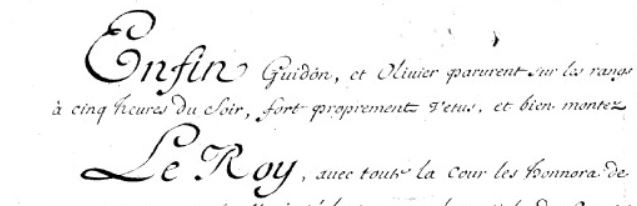 Enfin Guidon, et Olivier parurent sur les rangs
à cinq heures du soir, fort proprement vetus, et bien montez
Le Roy, avec toute la Cour les honnora de